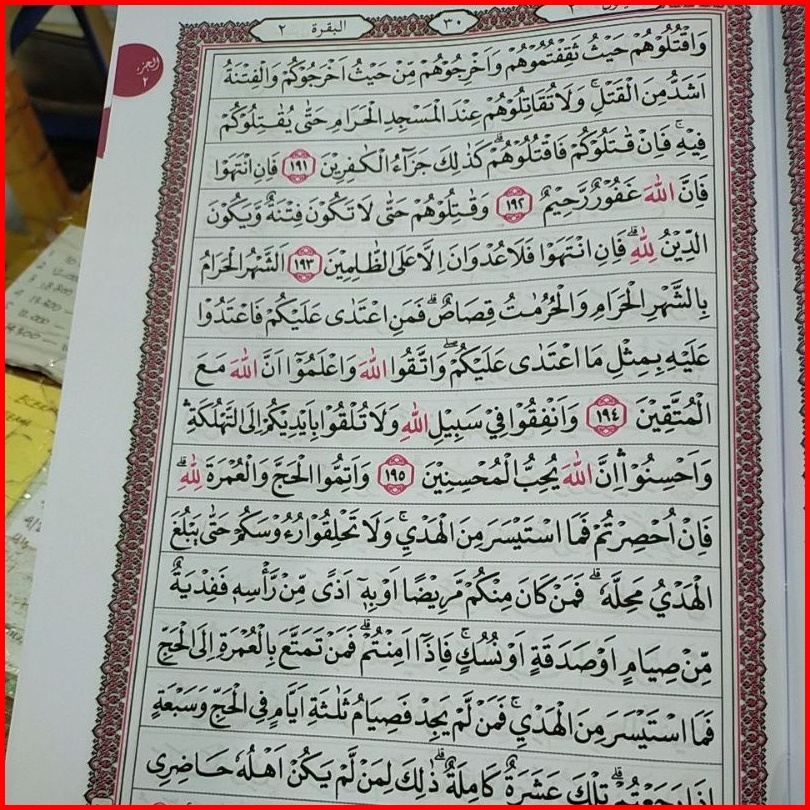 البقرة ٢
٣٠
الجزء ٢
وَاقْتُلُوْهُمْ حَيْثُ ثَقِفْتُمُوْهُمْ وَاَخْرِجُوْهُمْ مِّنْ حَيْثُ اَخْرَجُوْكُمْ وَالْفِتْنَةُ
اَشَدُّ مِنَ الْقَتْلِۚ وَلَا تُقَاتِلُوْهُمْ عِنْدَ الْمَسْجِدِ الْحَرَامِ حَتّٰى يُقٰتِلُوْكُمْ
فِيْهِۚ فَاِنْ قٰتَلُوْكُمْ فَاقْتُلُوْهُمْۗ كَذٰلِكَ جَزَاۤءُ الْكٰفِرِيْنَ ١٩١ فَاِنِ انْتَهَوْا
فَاِنَّ اللّٰهَ غَفُوْرٌ رَّحِيْمٌ ١٩٢ وَقٰتِلُوْهُمْ حَتّٰى لَا تَكُوْنَ فِتْنَةٌ وَّيَكُوْنَ
الدِّيْنُ لِلّٰهِۗ فَاِنِ انْتَهَوْا فَلَا عُدْوَانَ اِلَّا عَلَى الظّٰلِمِيْنَ ١٩٣ اَلشَّهْرُ الْحَرَامُ
بِالشَّهْرِ الْحَرَامِ وَالْحُرُمٰتُ قِصَاصٌۗ فَمَنِ اعْتَدٰى عَلَيْكُمْ فَاعْتَدُوْا
عَلَيْهِ بِمِثْلِ مَا اعْتَدٰى عَلَيْكُمْۖ وَاتَّقُوا اللّٰهَ وَاعْلَمُوْٓا اَنَّ اللّٰهَ مَعَ
الْمُتَّقِيْنَ ١٩٤ وَاَنْفِقُوْا فِيْ سَبِيْلِ اللّٰهِ وَلَا تُلْقُوْا بِاَيْدِيْكُمْ اِلَى التَّهْلُكَةِۛ
وَاَحْسِنُوْاۛ اِنَّ اللّٰهَ يُحِبُّ الْمُحْسِنِيْنَ ١٩٥ وَاَتِمُّوا الْحَجَّ وَالْعُمْرَةَ لِلّٰهِۗ
فَاِنْ اُحْصِرْتُمْ فَمَا اسْتَيْسَرَ مِنَ الْهَدْيِۚ وَلَا تَحْلِقُوْا رُءُوْسَكُمْ حَتّٰى يَبْلُغَ
الْهَدْيُ مَحِلَّهٗۗ فَمَنْ كَانَ مِنْكُمْ مَّرِيْضًا اَوْ بِهٖٓ اَذًى مِّنْ رَّأْسِهٖ فَفِدْيَةٌ
مِّنْ صِيَامٍ اَوْ صَدَقَةٍ اَوْ نُسُكٍۚ فَاِذَآ اَمِنْتُمْۗ فَمَنْ تَمَتَّعَ بِالْعُمْرَةِ اِلَى الْحَجِّ
فَمَا اسْتَيْسَرَ مِنَ الْهَدْيِۚ فَمَنْ لَّمْ يَجِدْ فَصِيَامُ ثَلٰثَةِ اَيَّامٍ فِى الْحَجِّ وَسَبْعَةٍ
اِذَا رَجَعْتُمْۗ تِلْكَ عَشَرَةٌ كَامِلَةٌۗ ذٰلِكَ لِمَنْ لَّمْ يَكُنْ اَهْلُهٗ حَاضِرِى